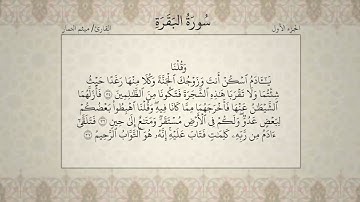 الجزء الأول
سُورَةُ البَقَرَةِ
القارئ/ ميثم التمار
وَقُلْنَا
يَـٰٓـَٔادَمُ ٱسْكُنْ أَنتَ وَزَوْجُكَ ٱلْجَنَّةَ وَكُلَا مِنْهَا رَغَدًا حَيْثُ
شِئْتُمَا وَلَا تَقْرَبَا هَـٰذِهِ ٱلشَّجَرَةَ فَتَكُونَا مِنَ ٱلظَّـٰلِمِينَ ٣٥ فَأَزَلَّهُمَا
ٱلشَّيْطَـٰنُ عَنْهَا فَأَخْرَجَهُمَا مِمَّا كَانَا فِيهِ وَقُلْنَا ٱهْبِطُوا۟ بَعْضُكُمْ
لِبَعْضٍ عَدُوٌّ وَلَكُمْ فِى ٱلْأَرْضِ مُسْتَقَرٌّ وَمَتَـٰعٌ إِلَىٰ حِينٍ ٣٦ فَتَلَقَّىٰٓ
ءَادَمُ مِن رَّبِّهِۦ كَلِمَـٰتٍ فَتَابَ عَلَيْهِ إِنَّهُۥ هُوَ ٱلتَّوَّابُ ٱلرَّحِيمُ ٣٧